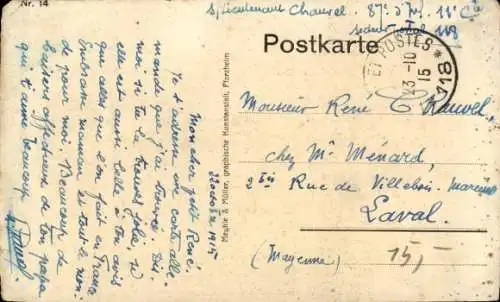 Nr. 14
Sous lieutenant Chauvel. 87e d'Inf. 11e Cie
secteur postal 118
Postkarte
ET POSTES *
23-10
15
118
Monsieur René Chauvel,
chez Mr Ménard,
2 bis Rue de Villebois-Mareuil
Laval.
(Mayenne)
15,-
Maultz & Müller, graphische Kunstanstalt, Pforzheim
22 octobre 1915
Mon cher petit René.
Je t'adresse une carte alle-
mande que j'ai trouvée. Dis-
moi si tu la trouves jolie, si
elle est aussi belle à ton avis
que celles que l'on fait en France
Embrasse maman et tout le monde
pour moi. Beaucoup de
baisers affectueux de ton papa
qui t'aime beaucoup